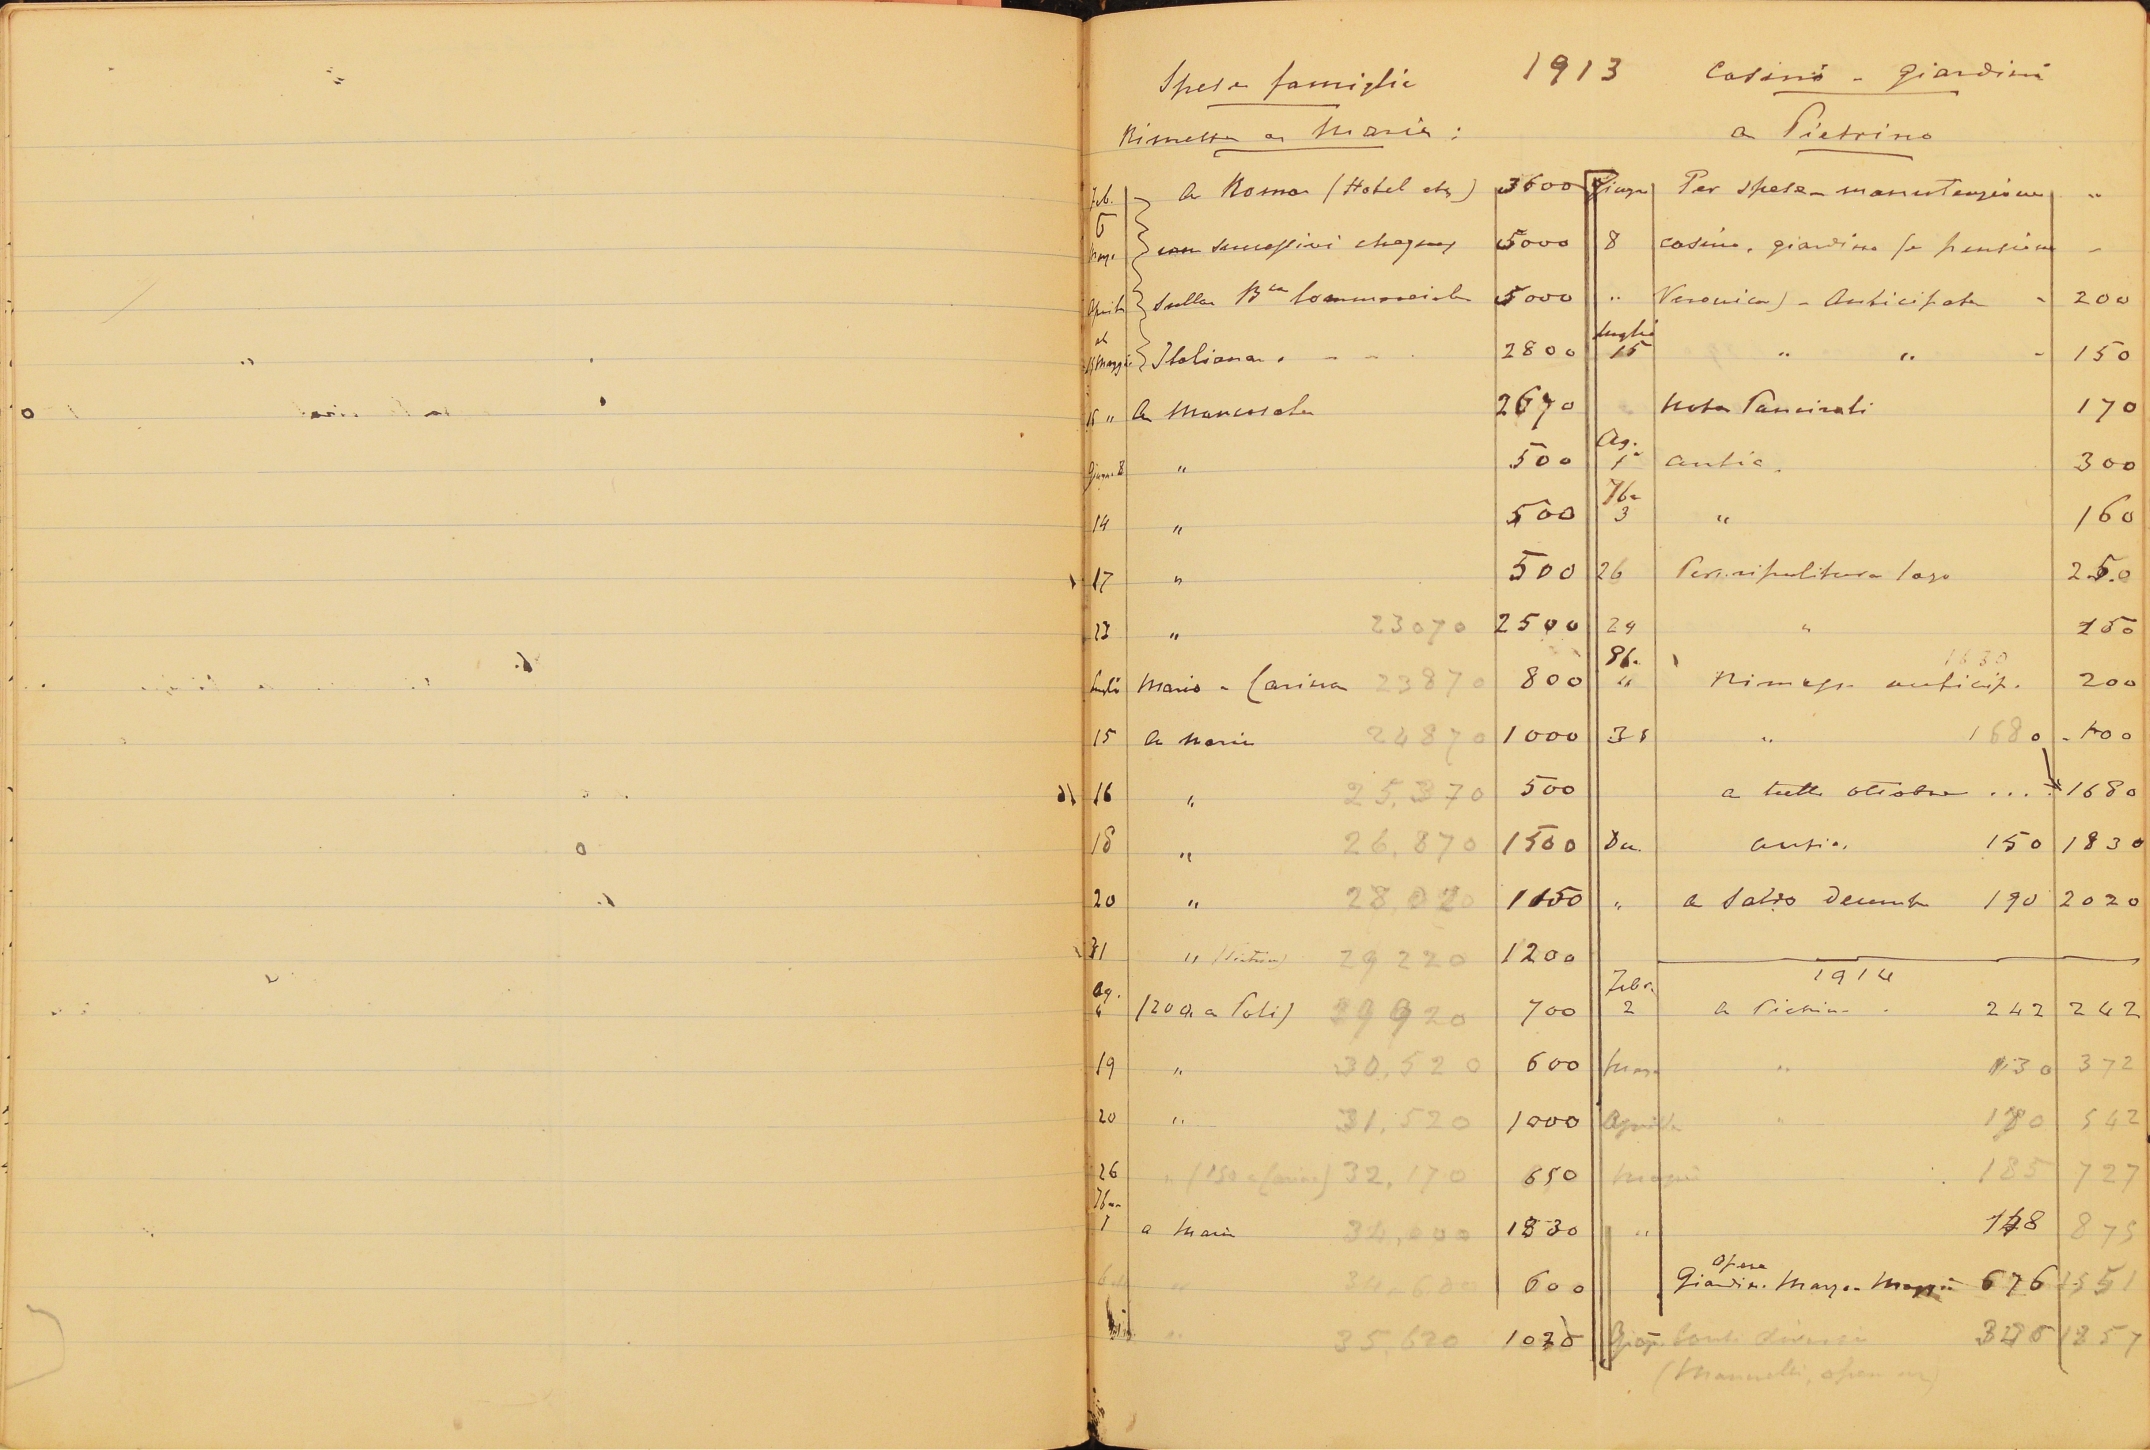 1913
Spese famiglia
Rimesse a Maria :
Feb. a Roma (Hotel etc) 3600
con successivi chèques 5000
Aprile sulla Bca Commerciale 5000
al Maggio Italiana . - - 2800
15 " A Macerata 2670
Giugno 8 " 500
14 " 500
17 " 500
23 " 23070 2500
Luglio Mario - 23870 800
15 a Maria 24870 1000
16 " 25,370 500
18 " 26,870 1500
20 " 28,020 1150
31 " 29220 1200
Ag. 4 (200 a Poli) 29920 700
19 " 30,520 600
20 " 31,520 1000
26 " 32,170 650
7bre 1 a Maria 34,000 1830
" 34,600 600
" 35,620 1020
Casino - giardini
a Pietrino
Giugno Per spese manutenzione "
8 casino, giardino (e pensione -
" Veronica) - Anticipate - 200
Luglio 15 " " - 150
Nota Pancirali 170
Ag. 1° antic. 300
7bre 3 " 160
26 Per ripulitura lago 250
29 " 150
8b. " Rimesse anticip. 1630 200
31 " 1680 100
a tutto ottobre .... 1680
De. antic. 150 1830
" a saldo Decembre 190 2020
1914
Febr. 2 a Pietrino . 242 242
Marzo " 130 372
Aprile " 170 542
Maggio 185 727
" 148 875
Opere Giardino Marzo - Maggio 676 1551
Giugno Conti diversi 1857
(Manuelli, opere ecc)